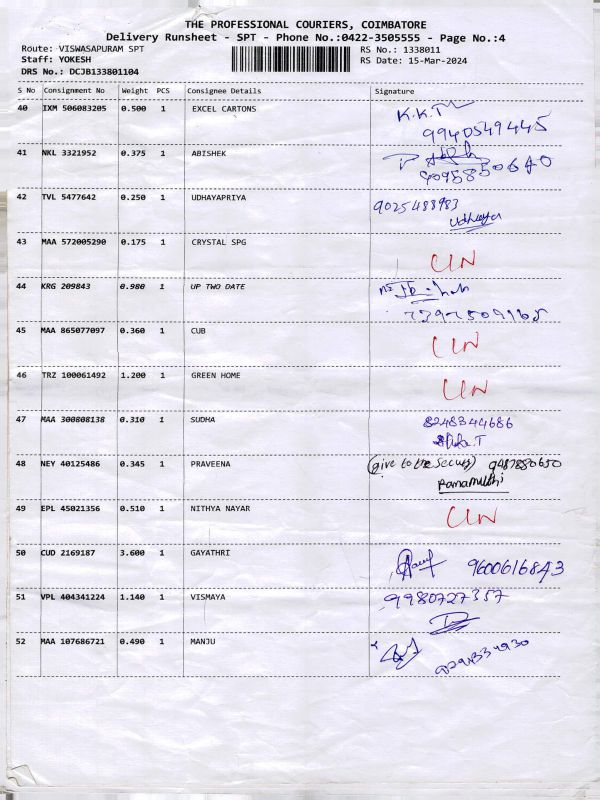 THE PROFESSIONAL COURIERS, COIMBATORE
Delivery Runsheet - SPT - Phone No.:0422-3505555 - Page No.:4
Route: VISWASAPURAM SPT RS No.: 1338011
Staff: YOKESH RS Date: 15-Mar-2024
DRS No.: DCJB133801104
S No Consignment No Weight PCS Consignee Details Signature
40 IXM 506083205 0.500 1 EXCEL CARTONS K.K.T
9940549445
41 NKL 3321952 0.375 1 ABISHEK
42 TVL 5477642 0.250 1 UDHAYAPRIYA 9025488983
Udhaya
43 MAA 572005290 0.175 1 CRYSTAL SPG UN
44 KRG 209843 0.980 1 UP TWO DATE
45 MAA 865077097 0.360 1 CUB UN
46 TRZ 100061492 1.200 1 GREEN HOME UN
47 MAA 300808138 0.310 1 SUDHA 8248344686
48 NEY 40125486 0.345 1 PRAVEENA (give to the Security) 9487880650
49 EPL 45021356 0.510 1 NITHYA NAYAR UN
50 CUD 2169187 3.600 1 GAYATHRI 9600616843
51 VPL 404341224 1.140 1 VISMAYA 9980727357
52 MAA 107686721 0.490 1 MANJU